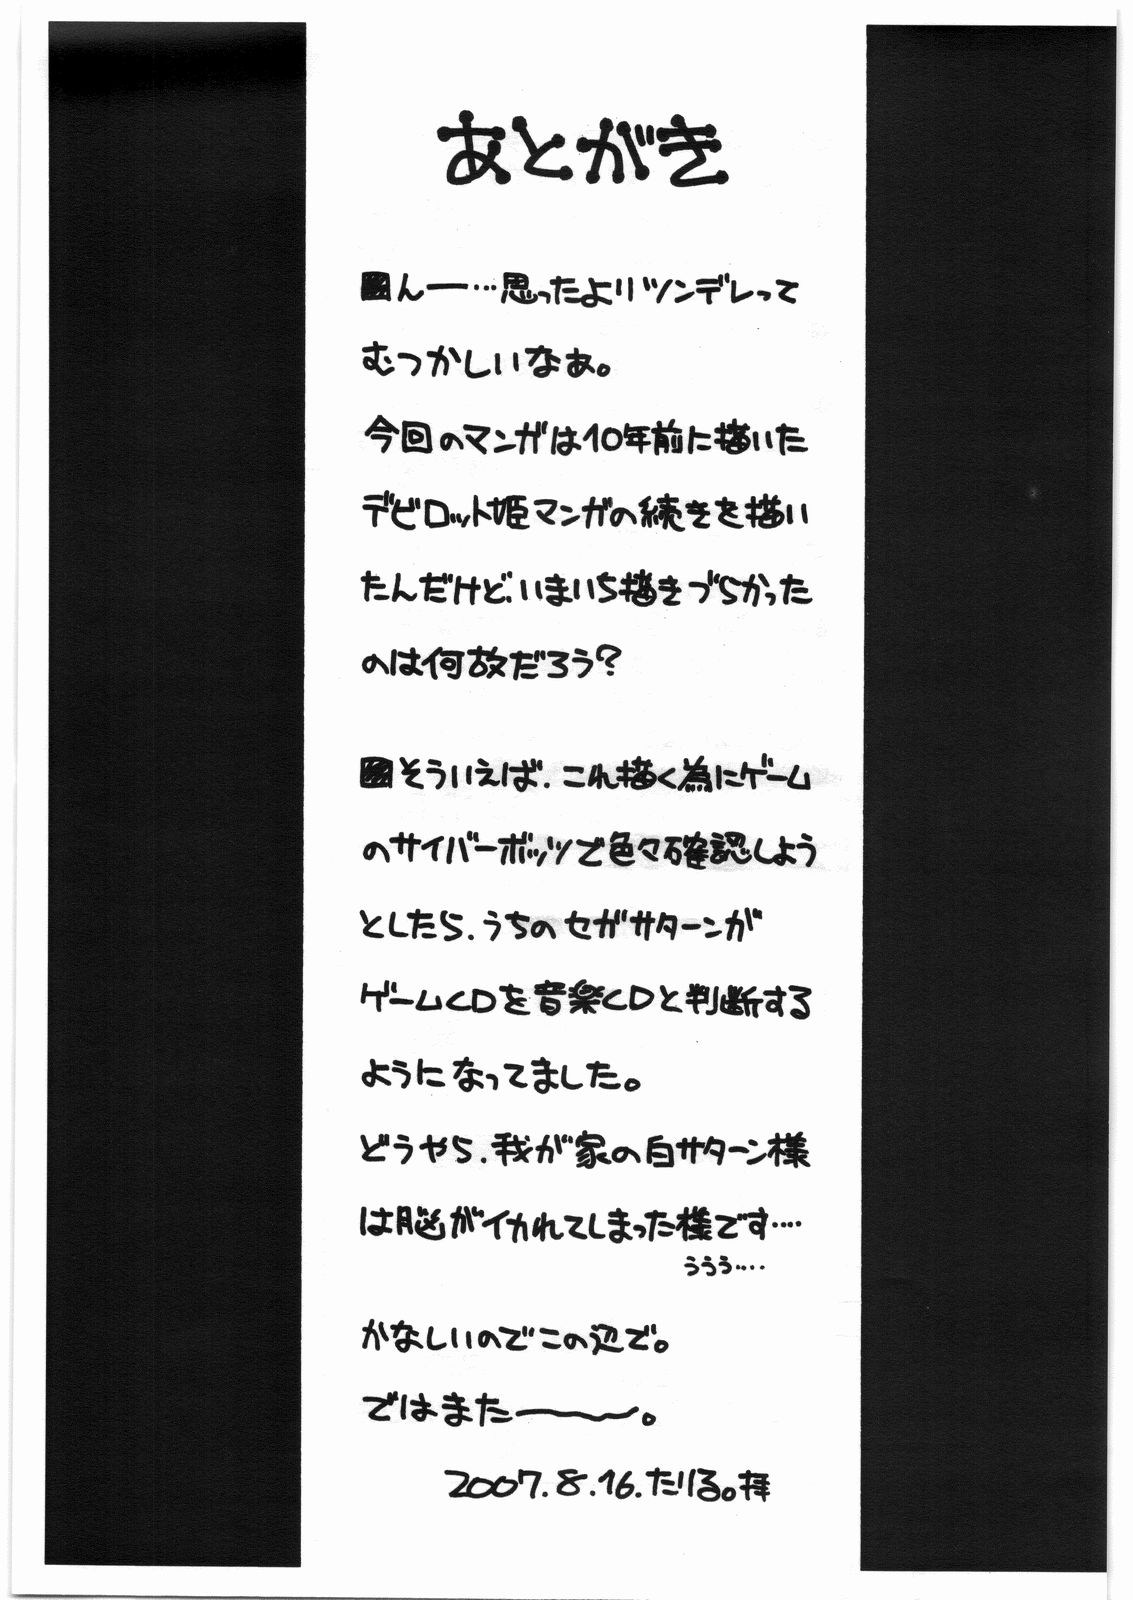 あとがき
▨んー…思ったよりツンデレって
むつかしいなぁ。
今回のマンガは10年前に描いた
デビロット姫マンガの続きを描い
たんだけど、いまいち描きづらかった
のは何故だろう?
▨そういえば、これ描く為にゲーム
のサイバーボッツで色々確認しよう
としたら、うちのセガサターンが
ゲームCDを音楽CDと判断する
ようになってました。
どうやら、我が家の白サターン様
は脳がイカれてしまった様です‥‥
ううう‥‥
かなしいのでこの辺で。
ではまた～。
2007.8.16.たりる。拝